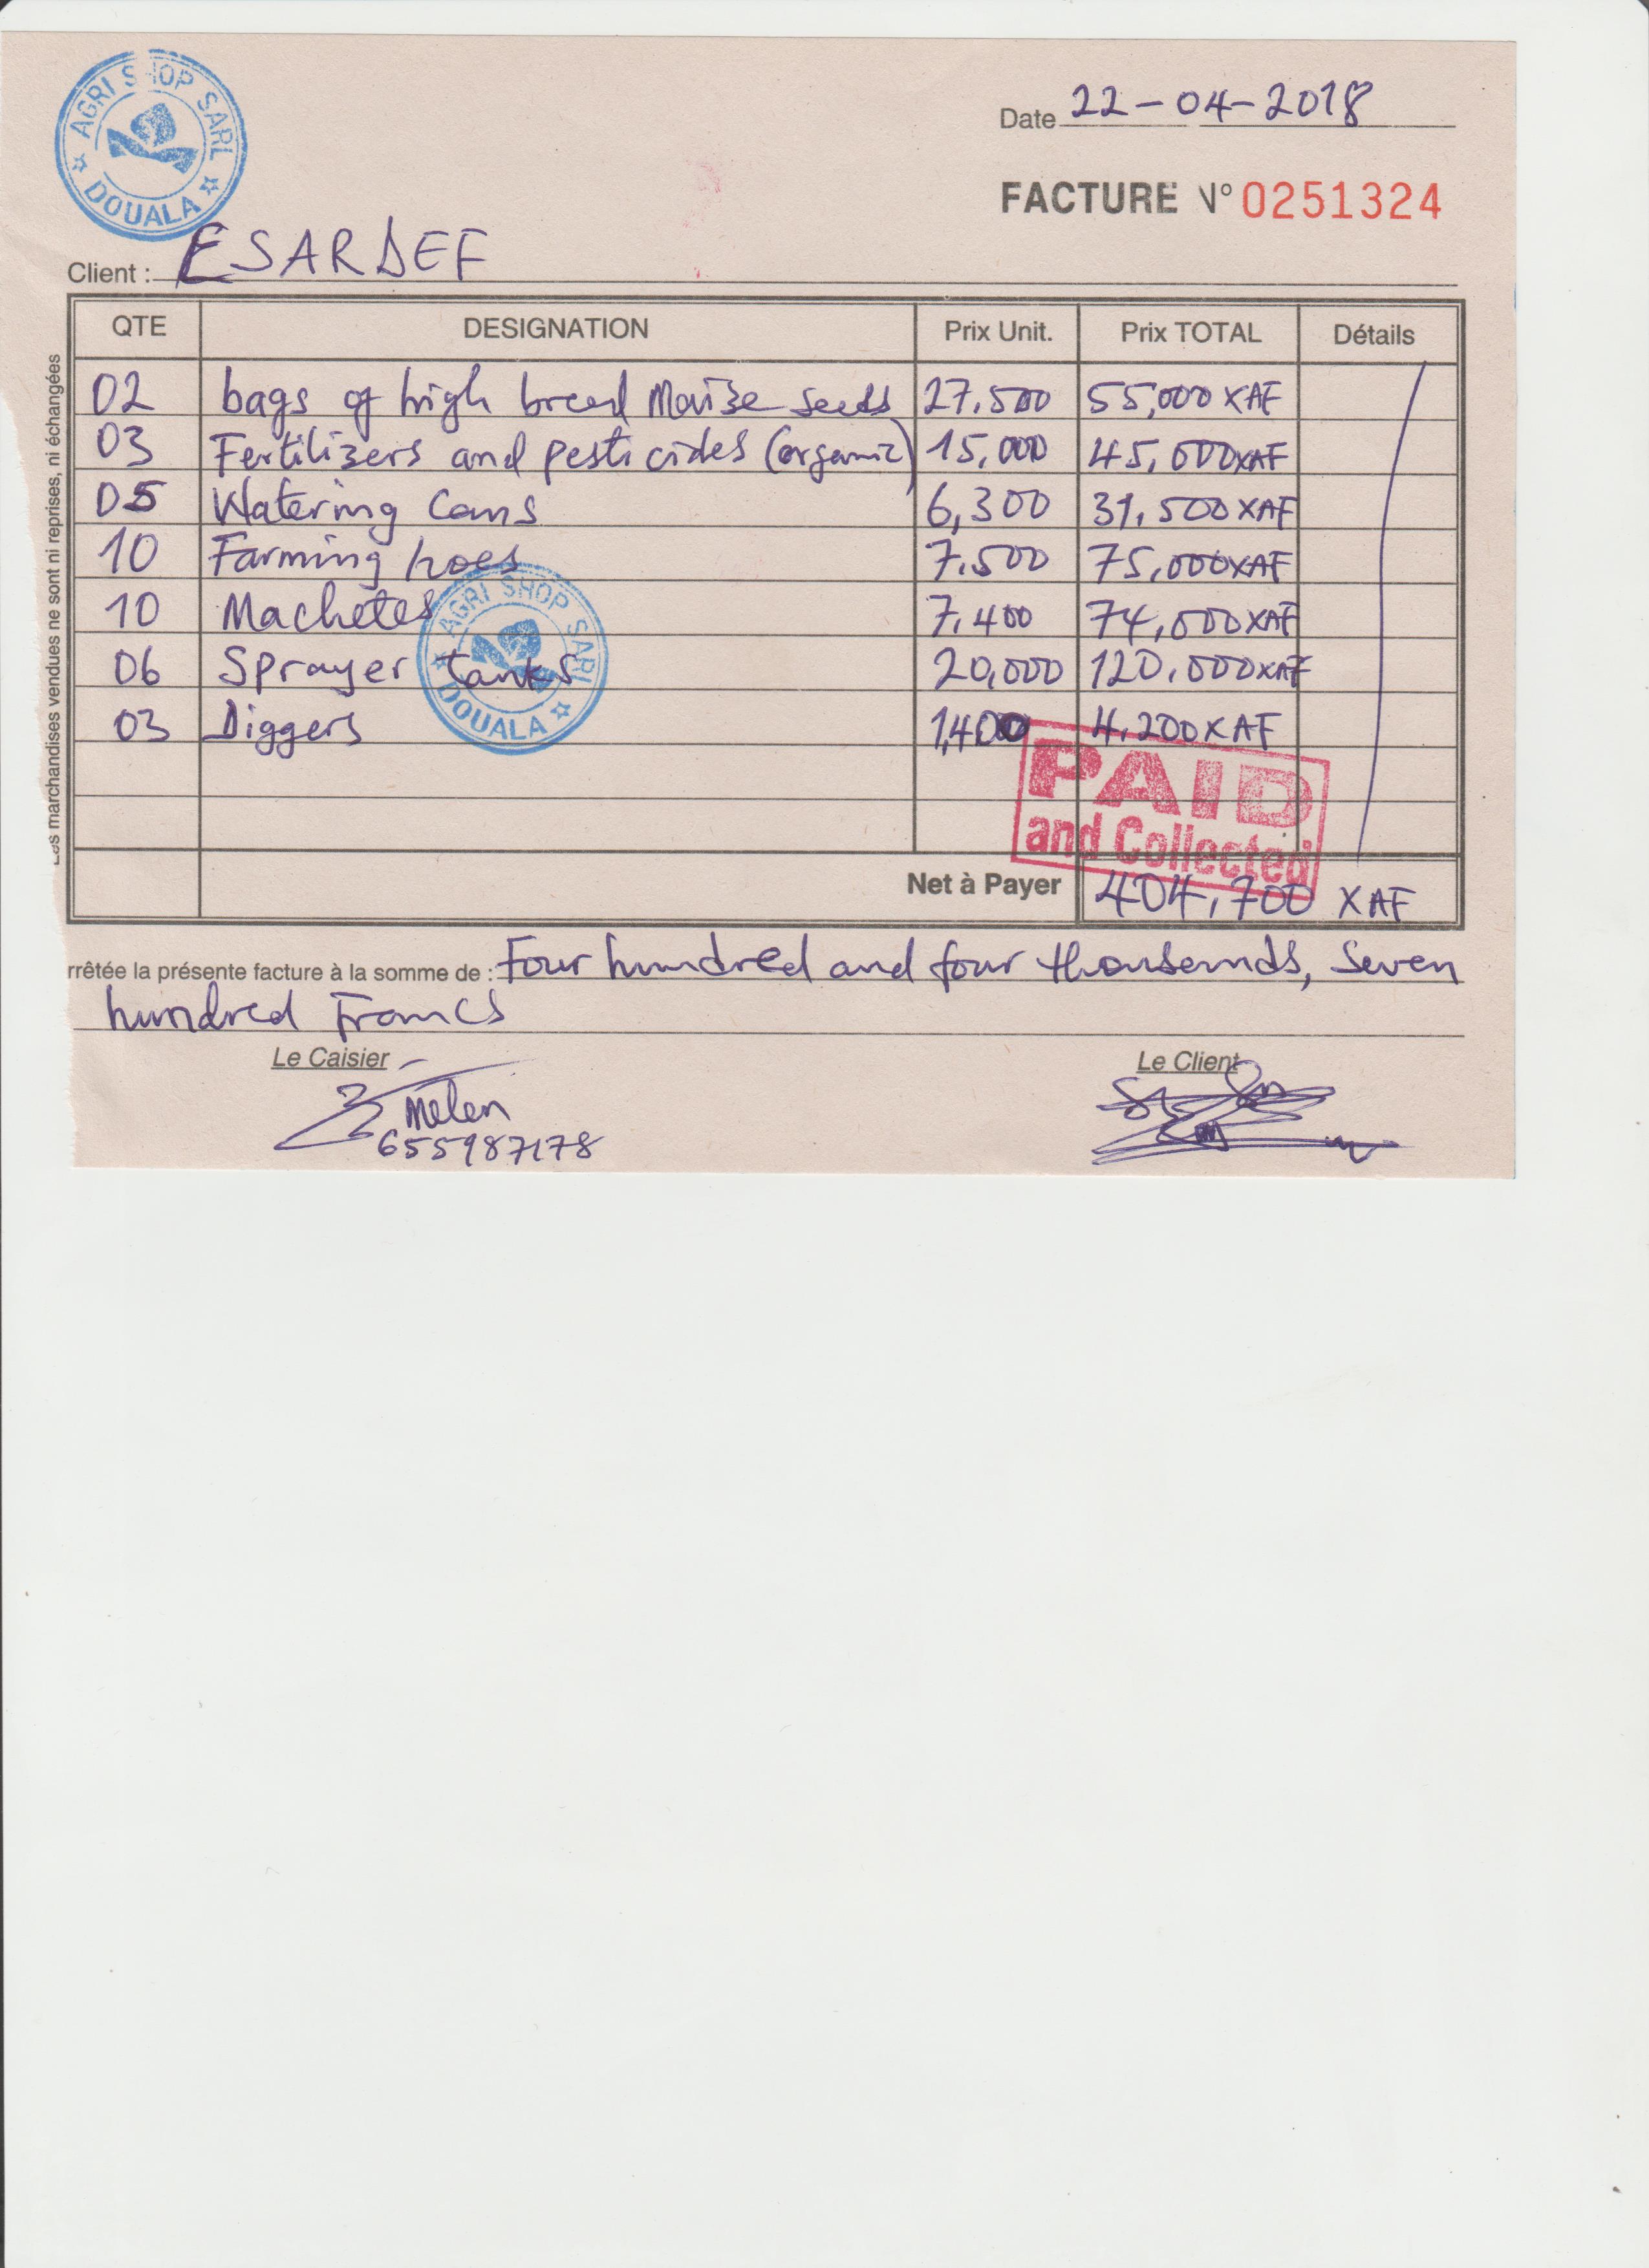 AGRI SHOP SARL
DOUALA
Date 22-04-2018
FACTURE N° 0251324
Client : ESARDEF
QTE DESIGNATION Prix Unit. Prix TOTAL Détails
02 bags of high breed Maize seeds 27,500 55,000 XAF
03 Fertilizers and pesticides (organic) 15,000 45,000 XAF
05 Watering Cans 6,300 31,500 XAF
10 Farming hoes 7,500 75,000 XAF
10 Machetes 7,400 74,000 XAF
06 Sprayer tanks 20,000 120,000 XAF
03 Diggers 1,400 4,200 XAF
AGRI SHOP SARL
DOUALA
PAID
and Collected
Net à Payer 404,700 XAF
rrêtée la présente facture à la somme de : Four hundred and four thousands, seven
hundred Francs
Le Caisier Le Client
Melen
655987178
Les marchandises vendues ne sont ni reprises, ni échangées